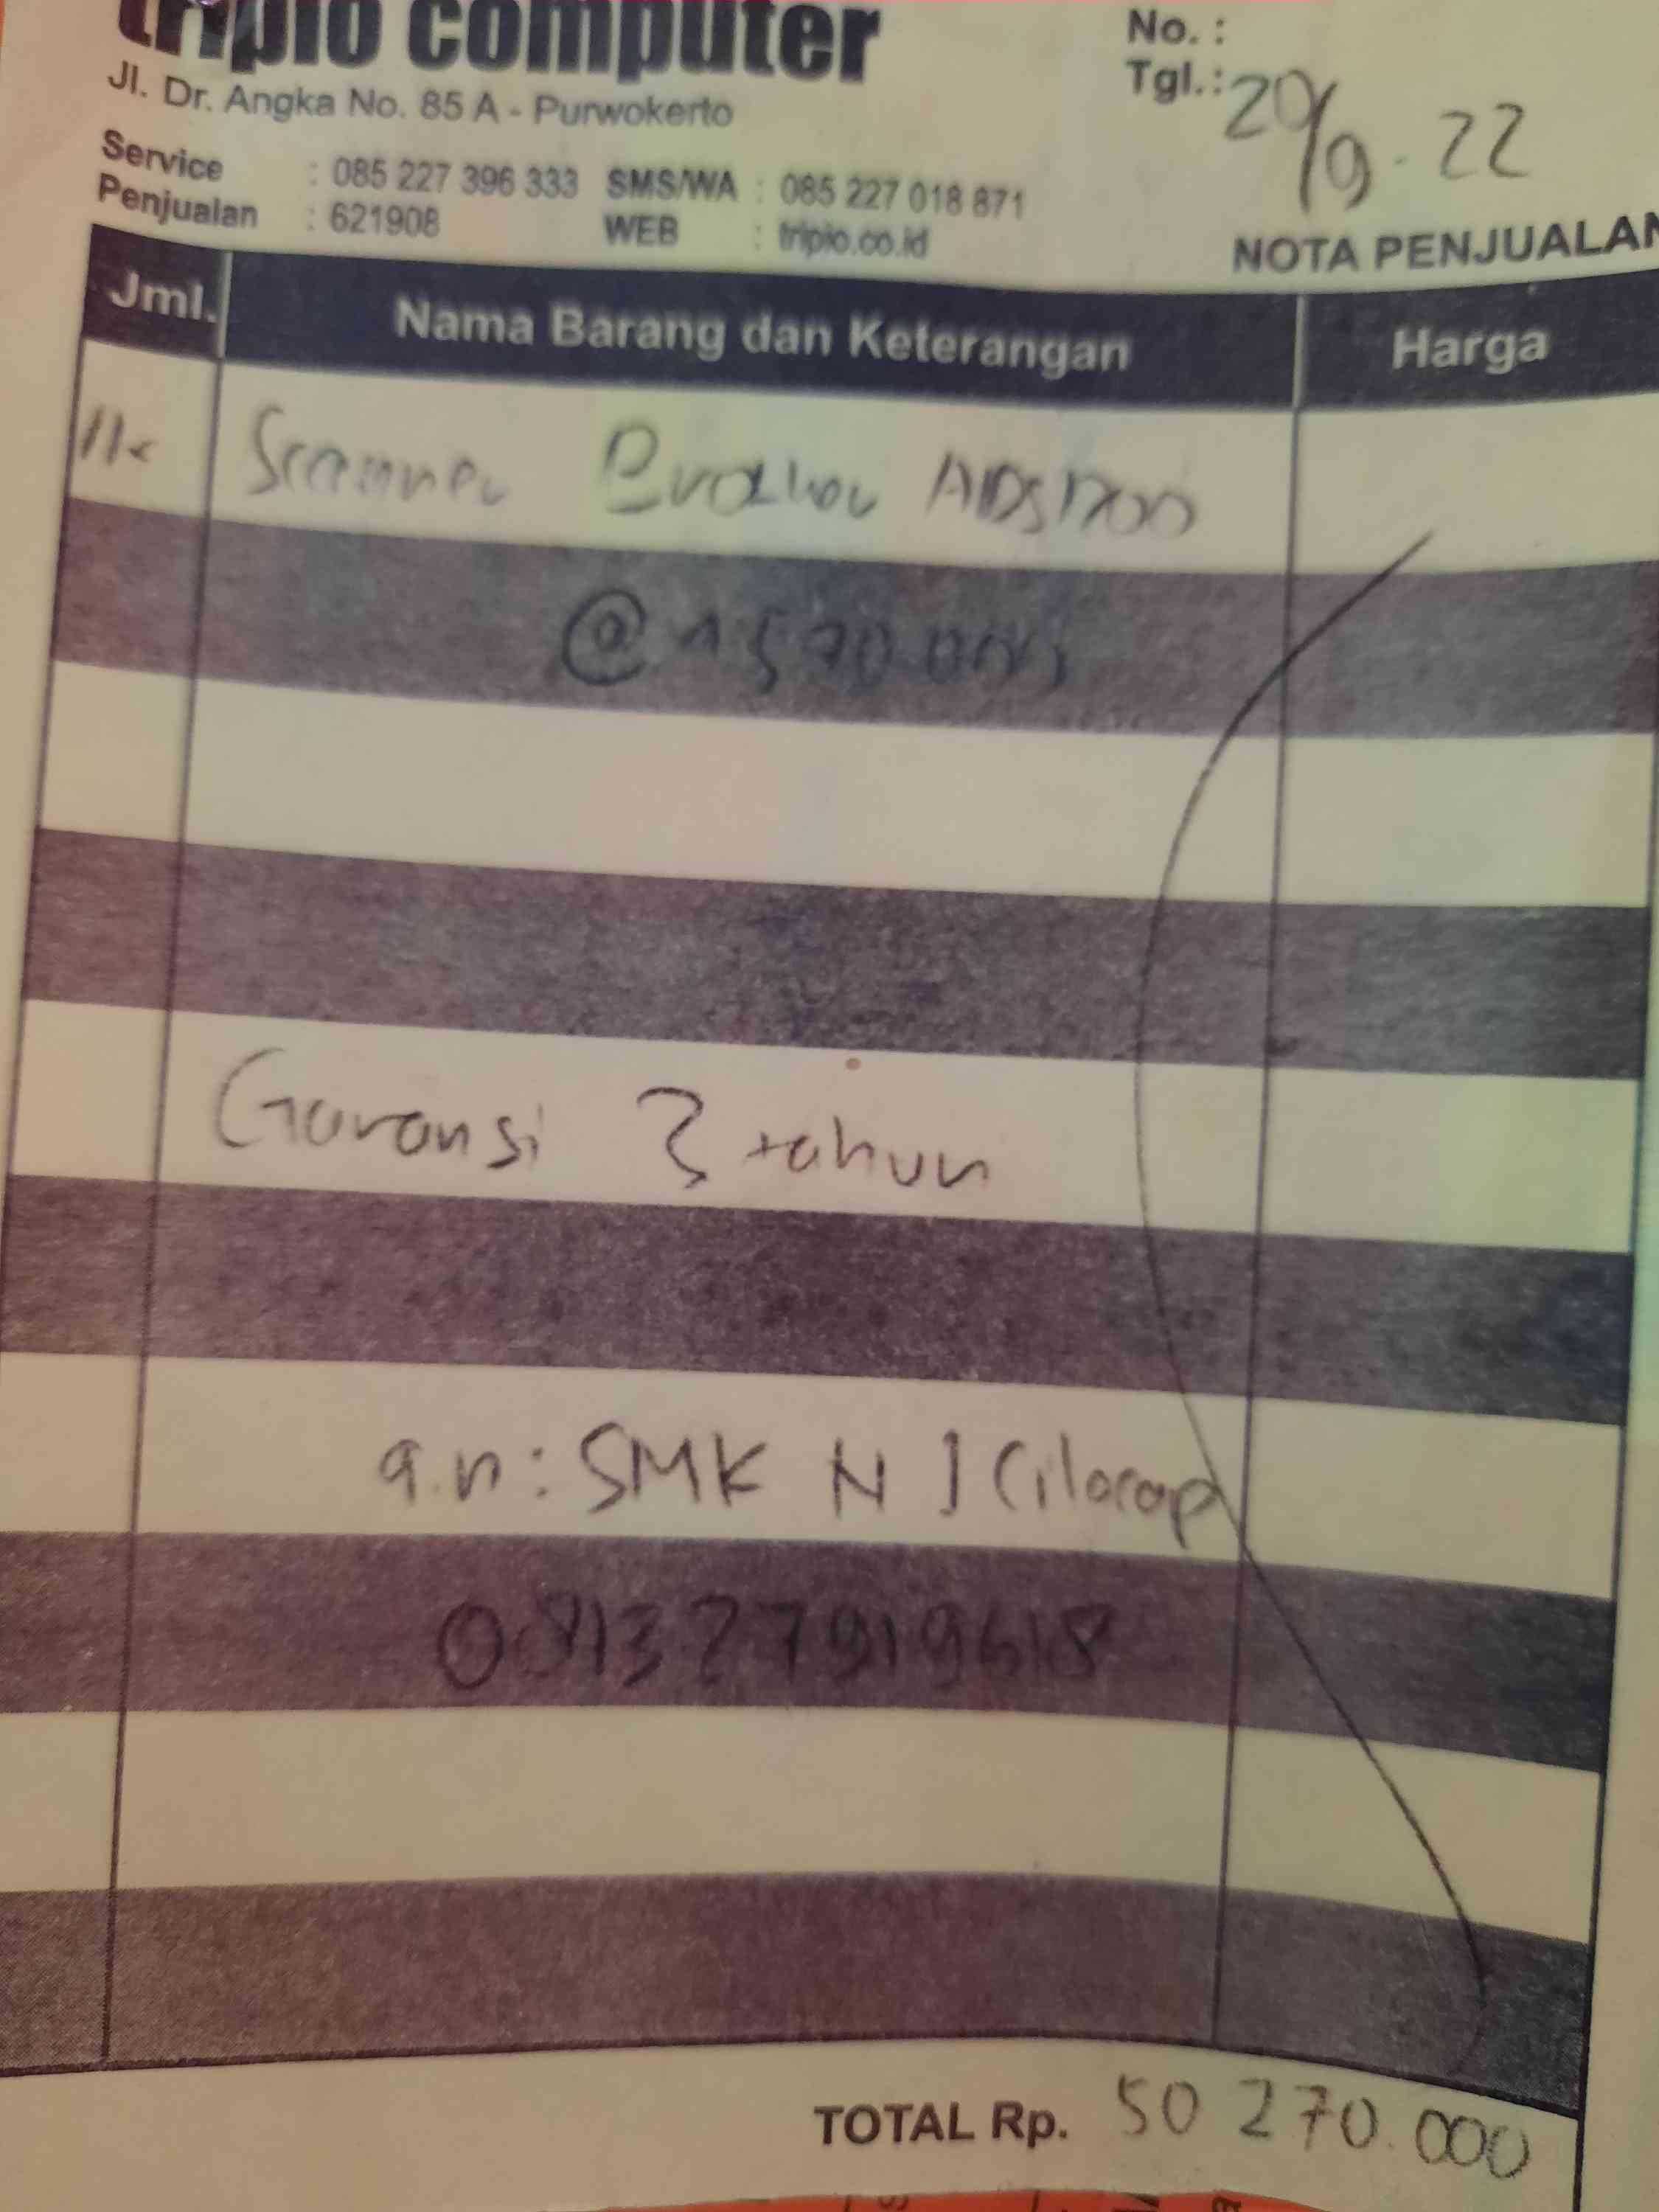 tripio computer
Jl. Dr. Angka No. 85 A - Purwokerto
Service : 085 227 396 333 SMS/WA : 085 227 018 871
Penjualan : 621908 WEB : tripio.co.id
No. :
Tgl.: 20/9 - 22
NOTA PENJUALAN
Jml. Nama Barang dan Keterangan Harga
11x Scanner Brother
@ 4570.000
Garansi 3 tahun
a.n : SMK N 1 Cilacap
081327919618
TOTAL Rp. 50 270.000